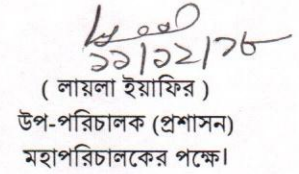 ১১/১২/১৮
( লায়লা ইয়াফির )
উপ-পরিচালক (প্রশাসন)
মহাপরিচালকের পক্ষে।